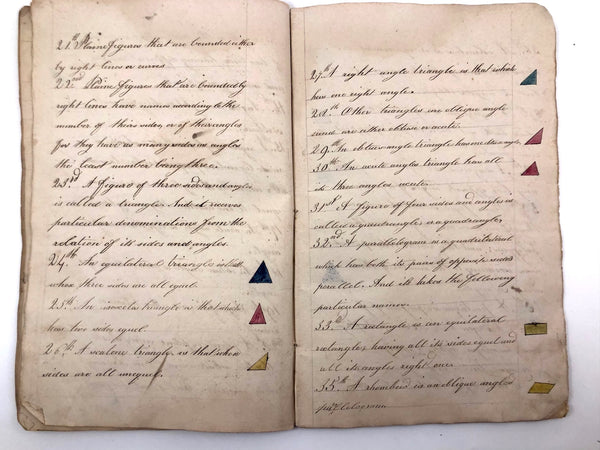 21.th Plaine figures that are bounded either
by right lines or curves.
22.nd Plaine figures that are bounded by
right lines have names according to the
number of theirs sides, or of their angles
for they have as many sides as angles
the least number being three.
23.rd A figure of three sides and angles
is called a triangle. And it receives
particular denominations from the
relation of its sides and angles.
24.th An equilateral triangle is that
whose three sides are all equal.
25.th An isoceles triangle is that which
has two sides equal.
26.th A scalene triangle, is that whose
sides are all unequal.
27.th A right angle triangle is that which
has one right angle.
28.th Other triangles are oblique angle
and are either obtuse or acute.
29.th An obtuse angle triangle has one obtuse angle
30.th An acute angles triangle has all
its three angles acute.
31.st A figure of four sides and angles is
called a quadrangle, or a quadrangle,
32.nd A parallelogram is a quadrilateral
which has both its pairs of opposite sides
parallel. And it takes the following
particular names.
33.th A rectangle is an equilateral
rectangle, having all its sides equal and
all its angles right one.
35.th A rhombus is an oblique angles
parallelogram